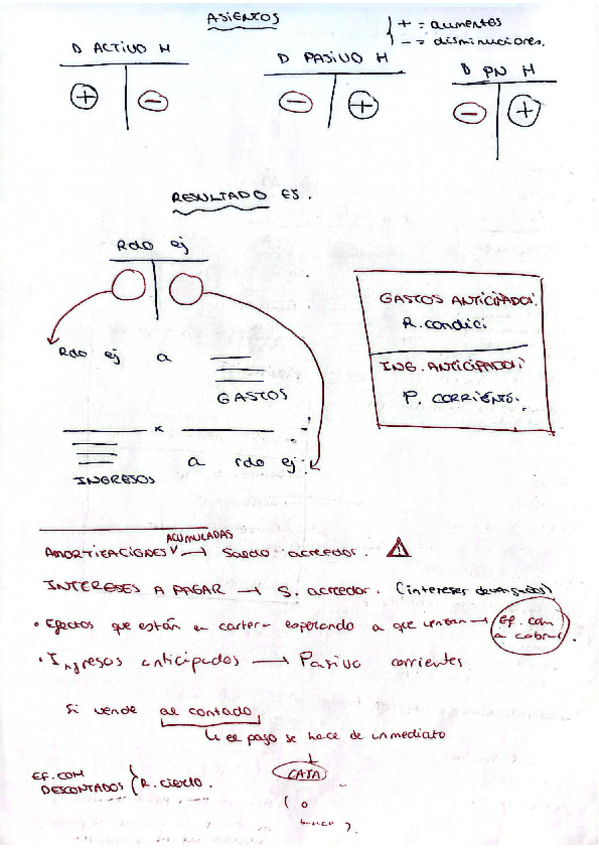 ASIENTOS
+ = aumentos
- = disminuciones.
D ACTIVO H
D PASIVO H
D PN H
+ -
- +
- +
RESULTADO EJ.
Rdo ej
Rdo ej a
GASTOS
x
a rdo ej
INGRESOS
GASTOS ANTICIPADOS:
R. condici
ING. ANTICIPADOS:
P. CORRIENTE.
ACUMULADAS
AMORTIZACIONES → Saldo acreedor. !
INTERESES A PAGAR → S. acreedor. (intereses devengados)
• Efectos que están en cartera esperando a que venzan → Ef. com a cobrar.
• Ingresos anticipados → Pasivo corrientes
Si vende al contado
↳ el pago se hace de inmediato
CAJA
( o
banco ).
EF. COM
DESCONTADOS